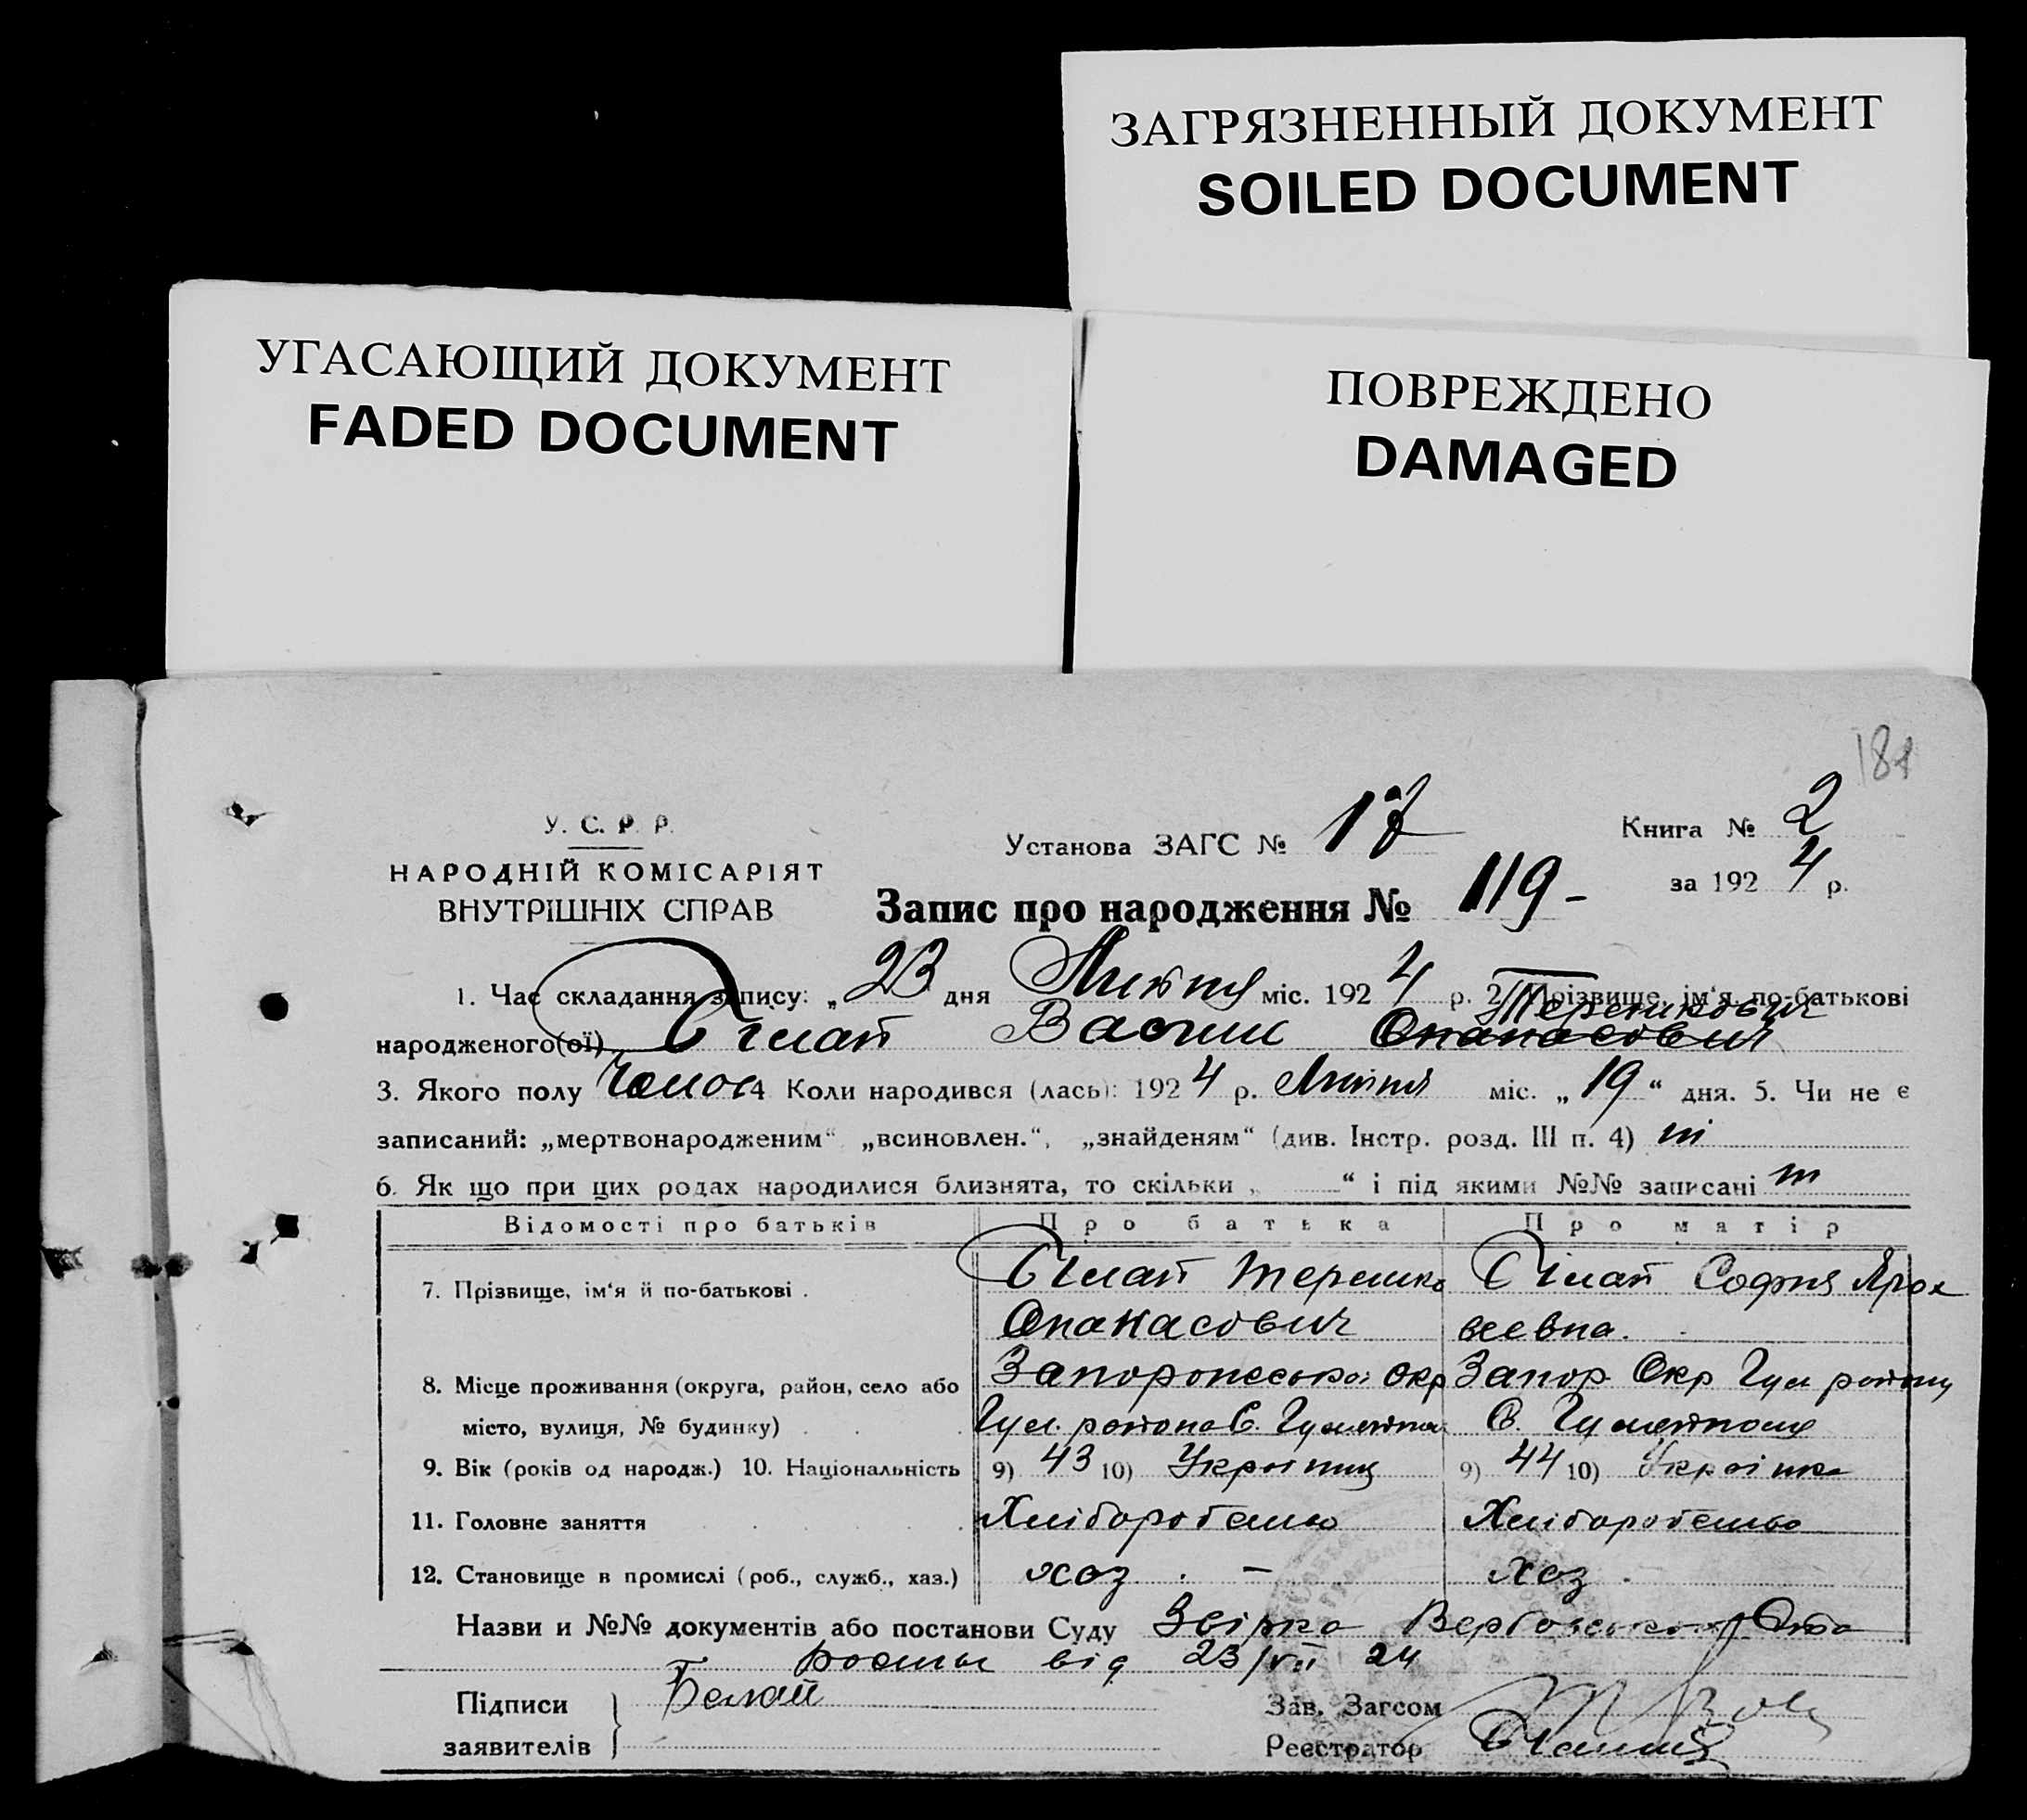 ЗАГРЯЗНЕННЫЙ ДОКУМЕНТ
SOILED DOCUMENT
УГАСАЮЩИЙ ДОКУМЕНТ
FADED DOCUMENT
ПОВРЕЖДЕНО
DAMAGED
У. С. Р. Р.
НАРОДНІЙ КОМІСАРІЯТ
ВНУТРІШНІХ СПРАВ
Установа ЗАГС № 17
Книга № 2
за 1924 р.
Запис про народження № 119 -
1. Час складання запису: „23 дня Липня міс. 1924 р. 2. Прізвище, ім‘я, по-батькові
Терешкович
народженого(ої) Білай Васили Опанасович
3. Якого полу Чолов 4 Коли народився (лась): 1924 р. Липня міс. „19“ дня. 5. Чи не є
записаний: „мертвонародженим“ „всиновлен.“, „знайденям“ (див. Інстр. розд. III п. 4) ні
6. Як що при цих родах народилися близнята, то скільки „ “ і під якими №№ записані
Відомості про батьків Про батька Про матір
7. Прізвище, ім‘я й по-батькові . Білай Терешко Білай София
Опанасович
8. Місце проживання (округа, район, село або Запоріжської окр Запор Окр Гул району
місто, вулиця, № будинку) Гул. района С. С.
9. Вік (років од народж.) 10. Національність 9) 43 10) Українец 9) 44 10) Українка
11. Головне заняття Хліборобство Хліборобство
12. Становище в промислі (роб., служб., хаз.) хоз. - хоз.
Назви и №№ документів або постанови Суду
від 23/VII 24
Підписи Белай Зав. Загсом
заявителів Реєстратор